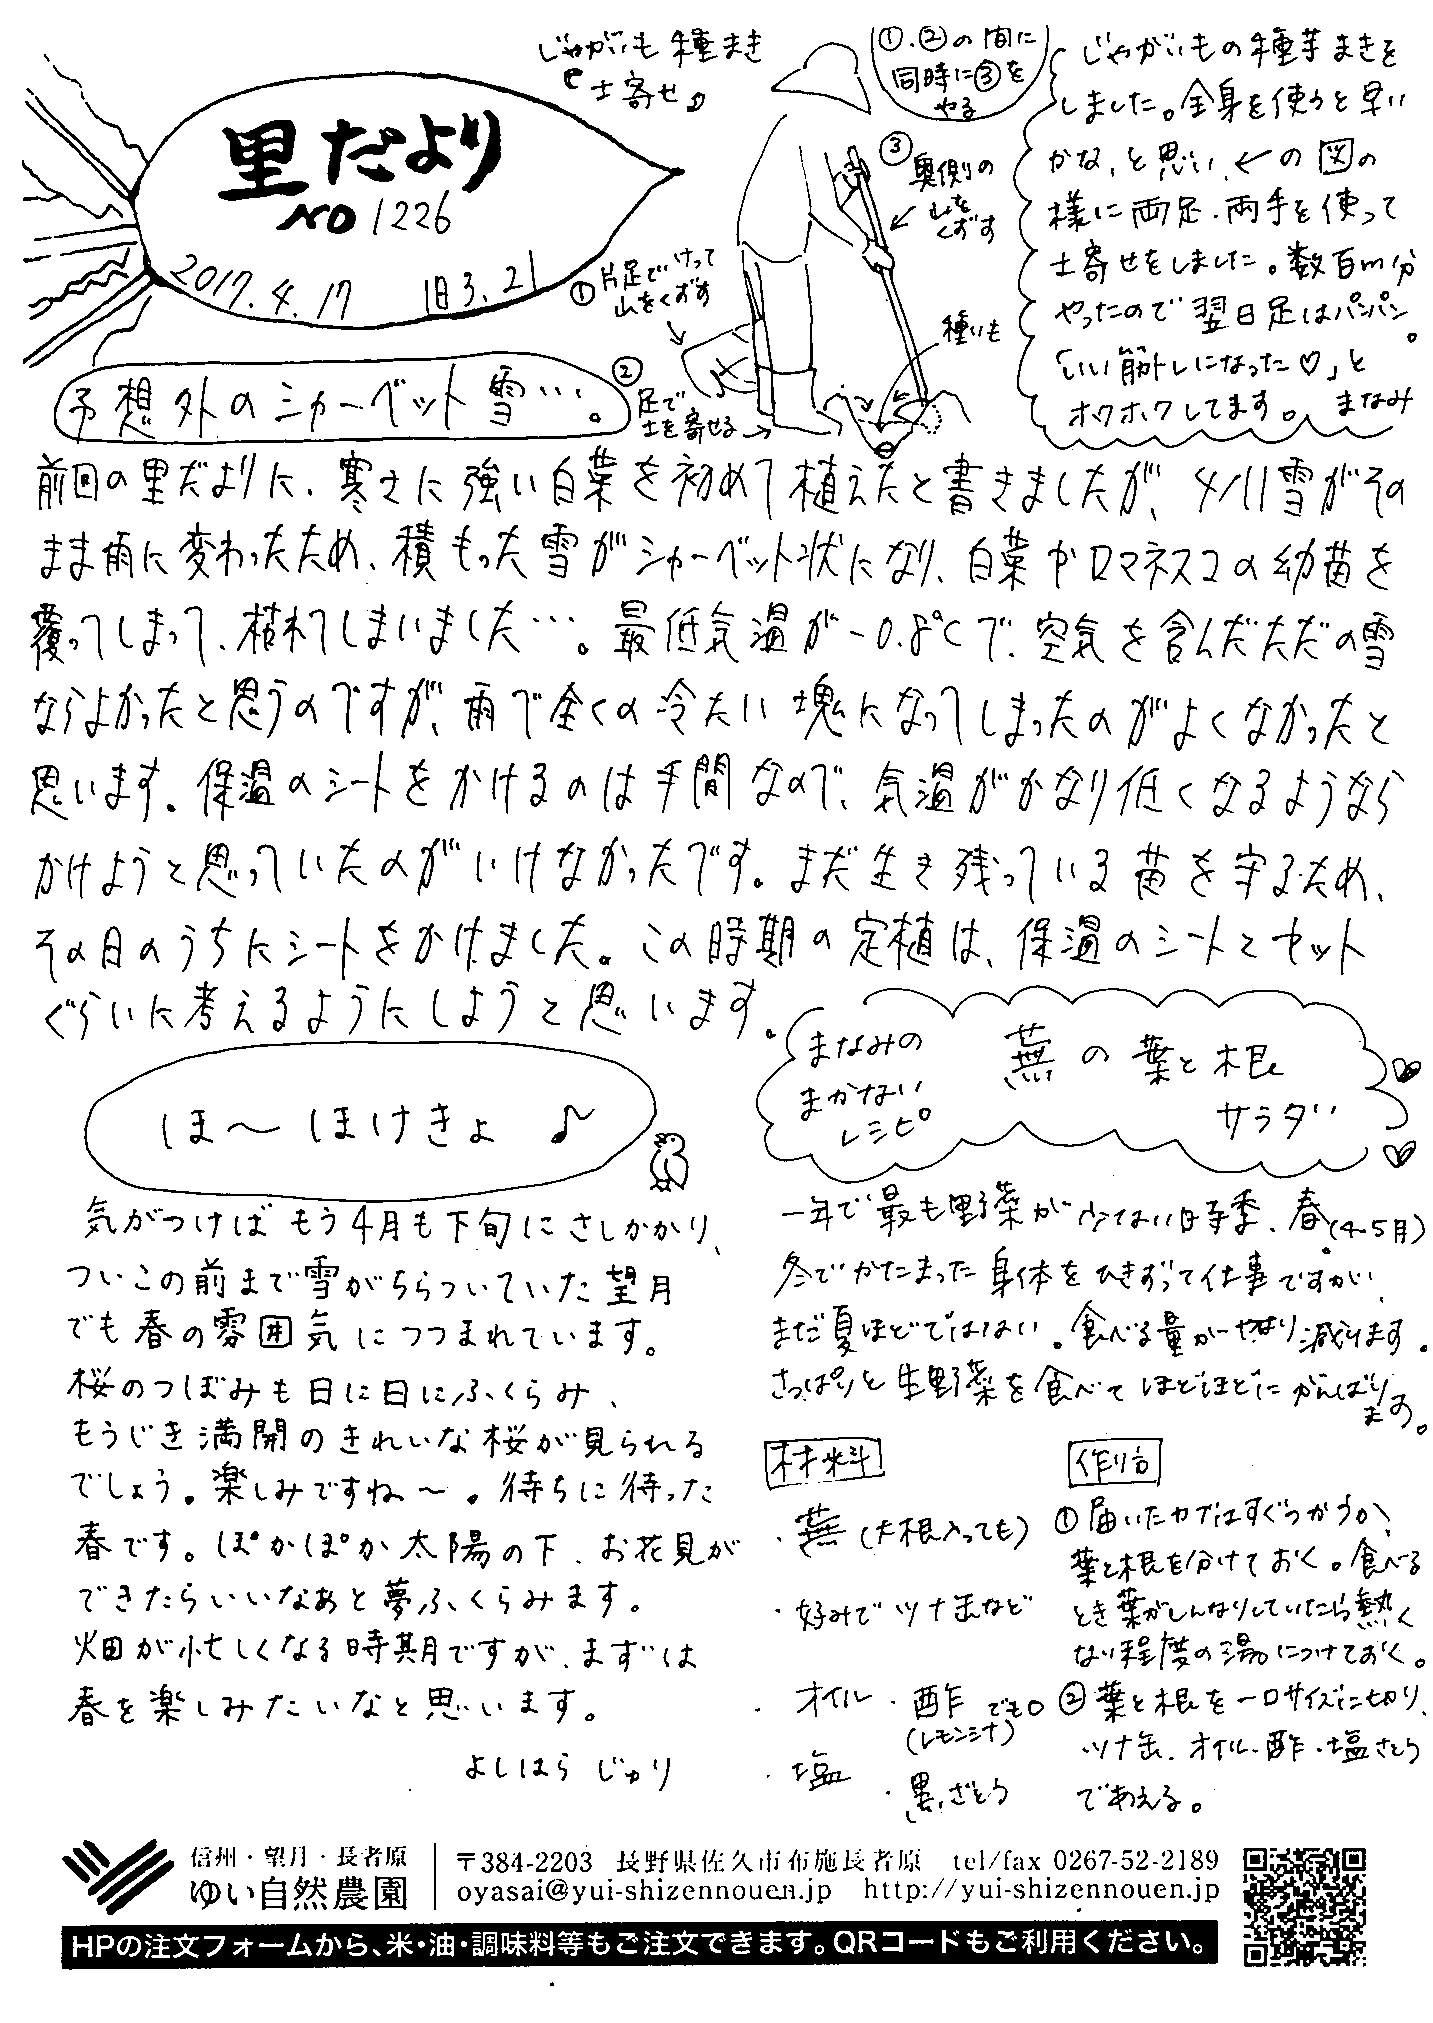 里だより
NO 1226
2017.4.17 旧3.21
じゃがいも種まき
『土寄せ』
①.②の間に
同時に③を
やる
③奥側の
山を
くずす
①片足でけって
山をくずす
②足で
土を寄せる
種いも
じゃがいもの種芋まきを
しました。全身を使うと早い
かな、と思い、←の図の
様に両足・両手を使って
土寄せをしました。数百m分
やったので翌日足はパンパン。
「いい筋トレになった♡」と
ホクホクしてます。 まなみ
予想外のシャーベット雪…。
前回の里だよりに、寒さに強い白菜を初めて植えたと書きましたが、4/11雪がその
まま雨に変わったため、積もった雪がシャーベット状になり、白菜やロマネスコの幼苗を
覆ってしまって、枯れてしまいました…。最低気温が-0.8℃で、空気を含んだただの雪
ならよかったと思うのですが、雨で全くの冷たい塊になってしまったのがよくなかったと
思います。保温のシートをかけるのは手間なので、気温がかなり低くなるようなら
かけようと思っていたのがいけなかったです。まだ生き残っている苗を守るため、
その日のうちにシートをかけました。この時期の定植は、保温のシートとセット
ぐらいに考えるようにしようと思います。
ほ〜ほけきょ ♪
気がつけばもう4月も下旬にさしかかり、
ついこの前まで雪がちらついていた望月
でも春の雰囲気につつまれています。
桜のつぼみも日に日にふくらみ、
もうじき満開のきれいな桜が見られる
でしょう。楽しみですね〜。待ちに待った
春です。ぽかぽか太陽の下、お花見が
できたらいいなあと夢ふくらみます。
畑が忙しくなる時期ですが、まずは
春を楽しみたいなと思います。
よしはら じゅり
まなみの
まかない
レシピ
蕪の葉と根
サラダ
一年で最も野菜が少ない時季、春(4~5月)。
冬でかたまった身体をひきずって仕事ですが、
まだ夏ほどではない。食べる量がやはり減ります。
さっぱりと生野菜を食べてほどほどにがんばり
ます。
材料
・蕪(大根入っても)
・好みでツナ缶など
・オイル ・酢 でも○
(レモン汁)
・塩 ・黒ざとう
作り方
①届いたカブはすぐつかうか、
葉と根を分けておく。食べる
とき葉がしんなりしていたら熱く
ない程度の湯につけておく。
②葉と根を一口サイズに切り、
ツナ缶、オイル・酢・塩さとう
であえる。
信州・望月・長者原
ゆい自然農園
〒384-2203 長野県佐久市布施長者原 tel/fax 0267-52-2189
oyasai@yui-shizennouen.jp http://yui-shizennouen.jp
HPの注文フォームから、米・油・調味料等もご注文できます。QRコードもご利用ください。